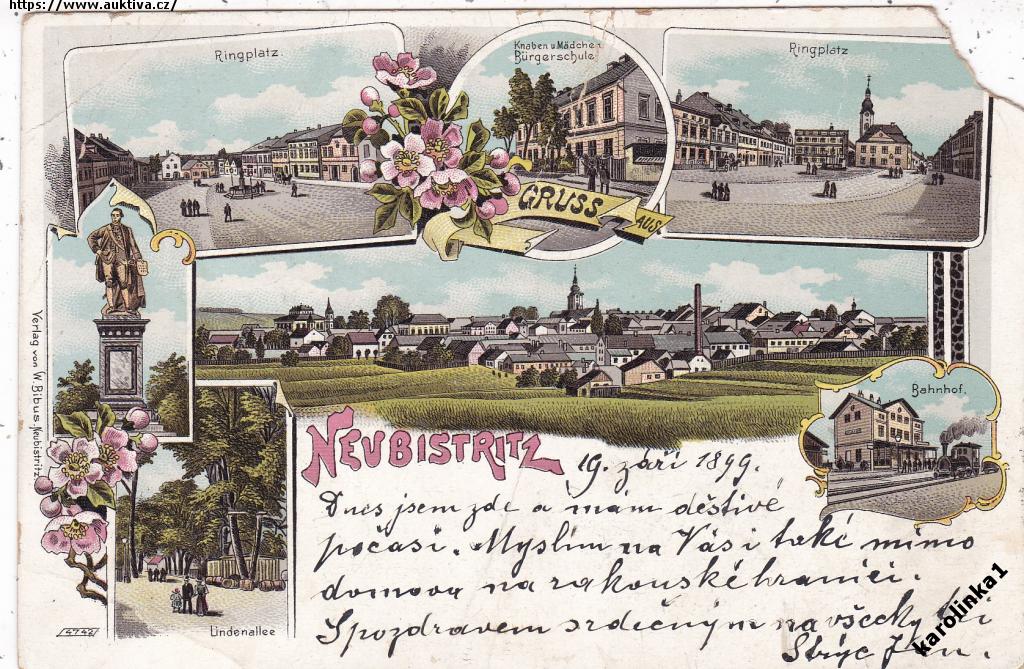 https://www.auktiva.cz/
Ringplatz.
Knaben u Mädchen
Bürgerschule
Ringplatz
GRUSS AUS
Verlag von W. Bibus, Neubistritz
Bahnhof.
NEUBISTRITZ
19. září 1899.
Dnes jsem zde a mám deštivé
počasí. Myslím na Vás i také mimo
domova na rakouské hranici.
S pozdravem srdečným na všecky
Strýc Jan.
4742
Lindenallee
karolinka1